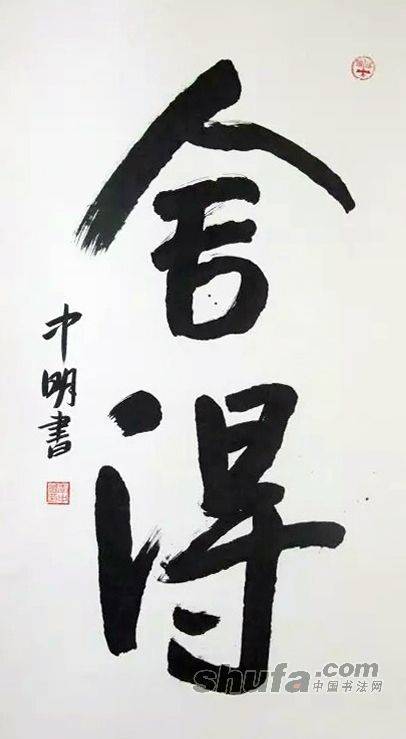 舍得
中明書
shufa.com
中国书法网